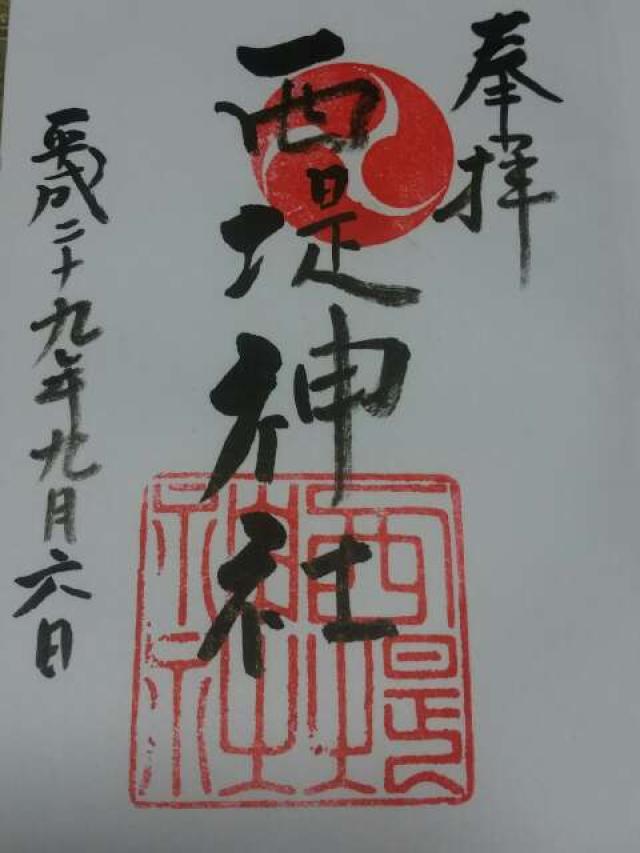 奉拝
西堤神社
西堤神社
平成二十九年九月六日